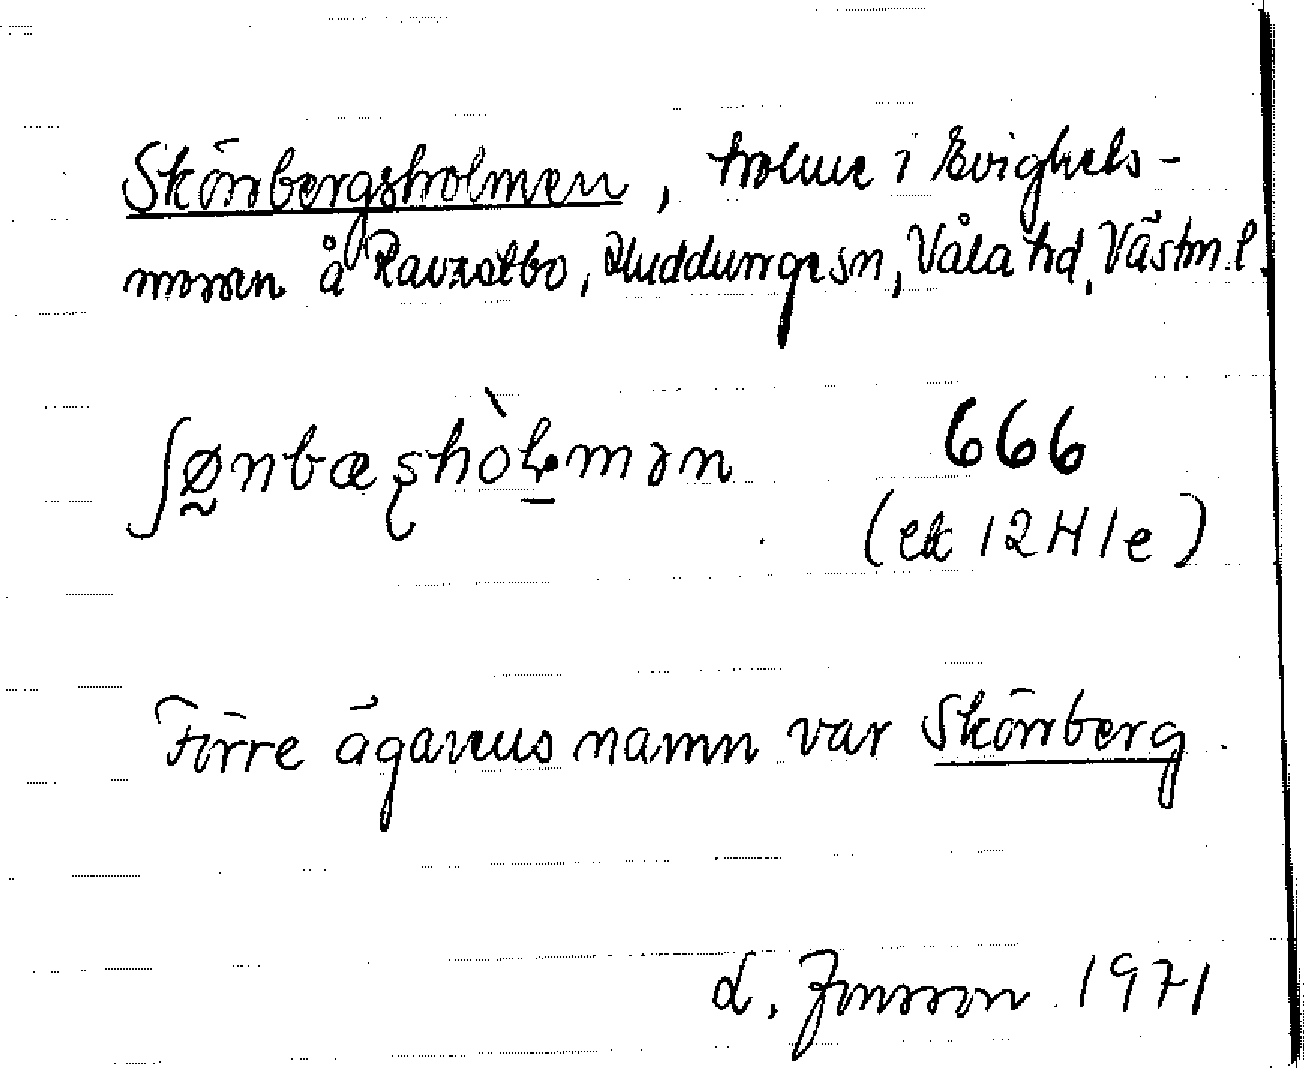 Skönbergsholmen, holme i Evighets-
mossen å Ravastbo, Huddunge sn, Våla hd, Västm.l.
666
(ek 12H1e)
Förre ägarens namn var Skönberg.
L. Jonsson 1971